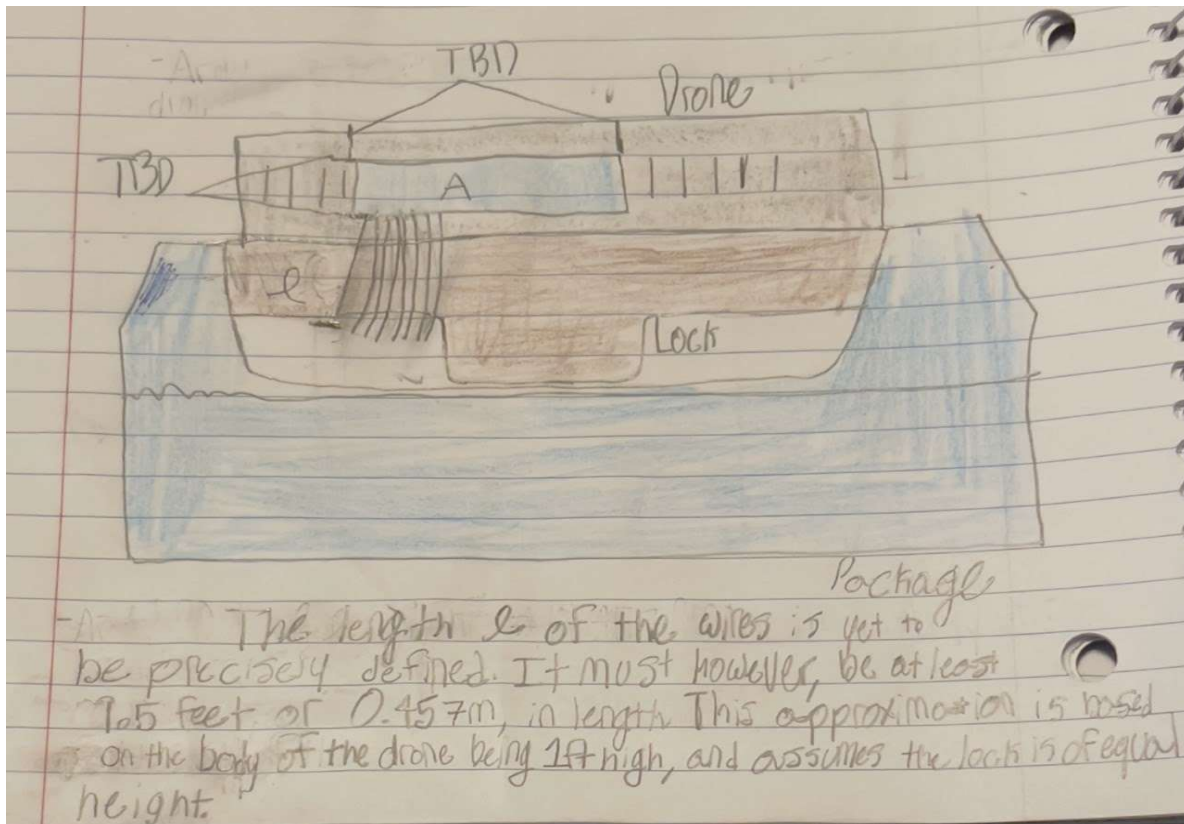 TBD
Drone
TBD
A
l
Lock
Package
The length l of the wires is yet to
be precisely defined. It must however, be at least
1.5 feet or 0.457m, in length This approximation is based
on the body of the drone being 1ft high, and assumes the lock is of equal
height.